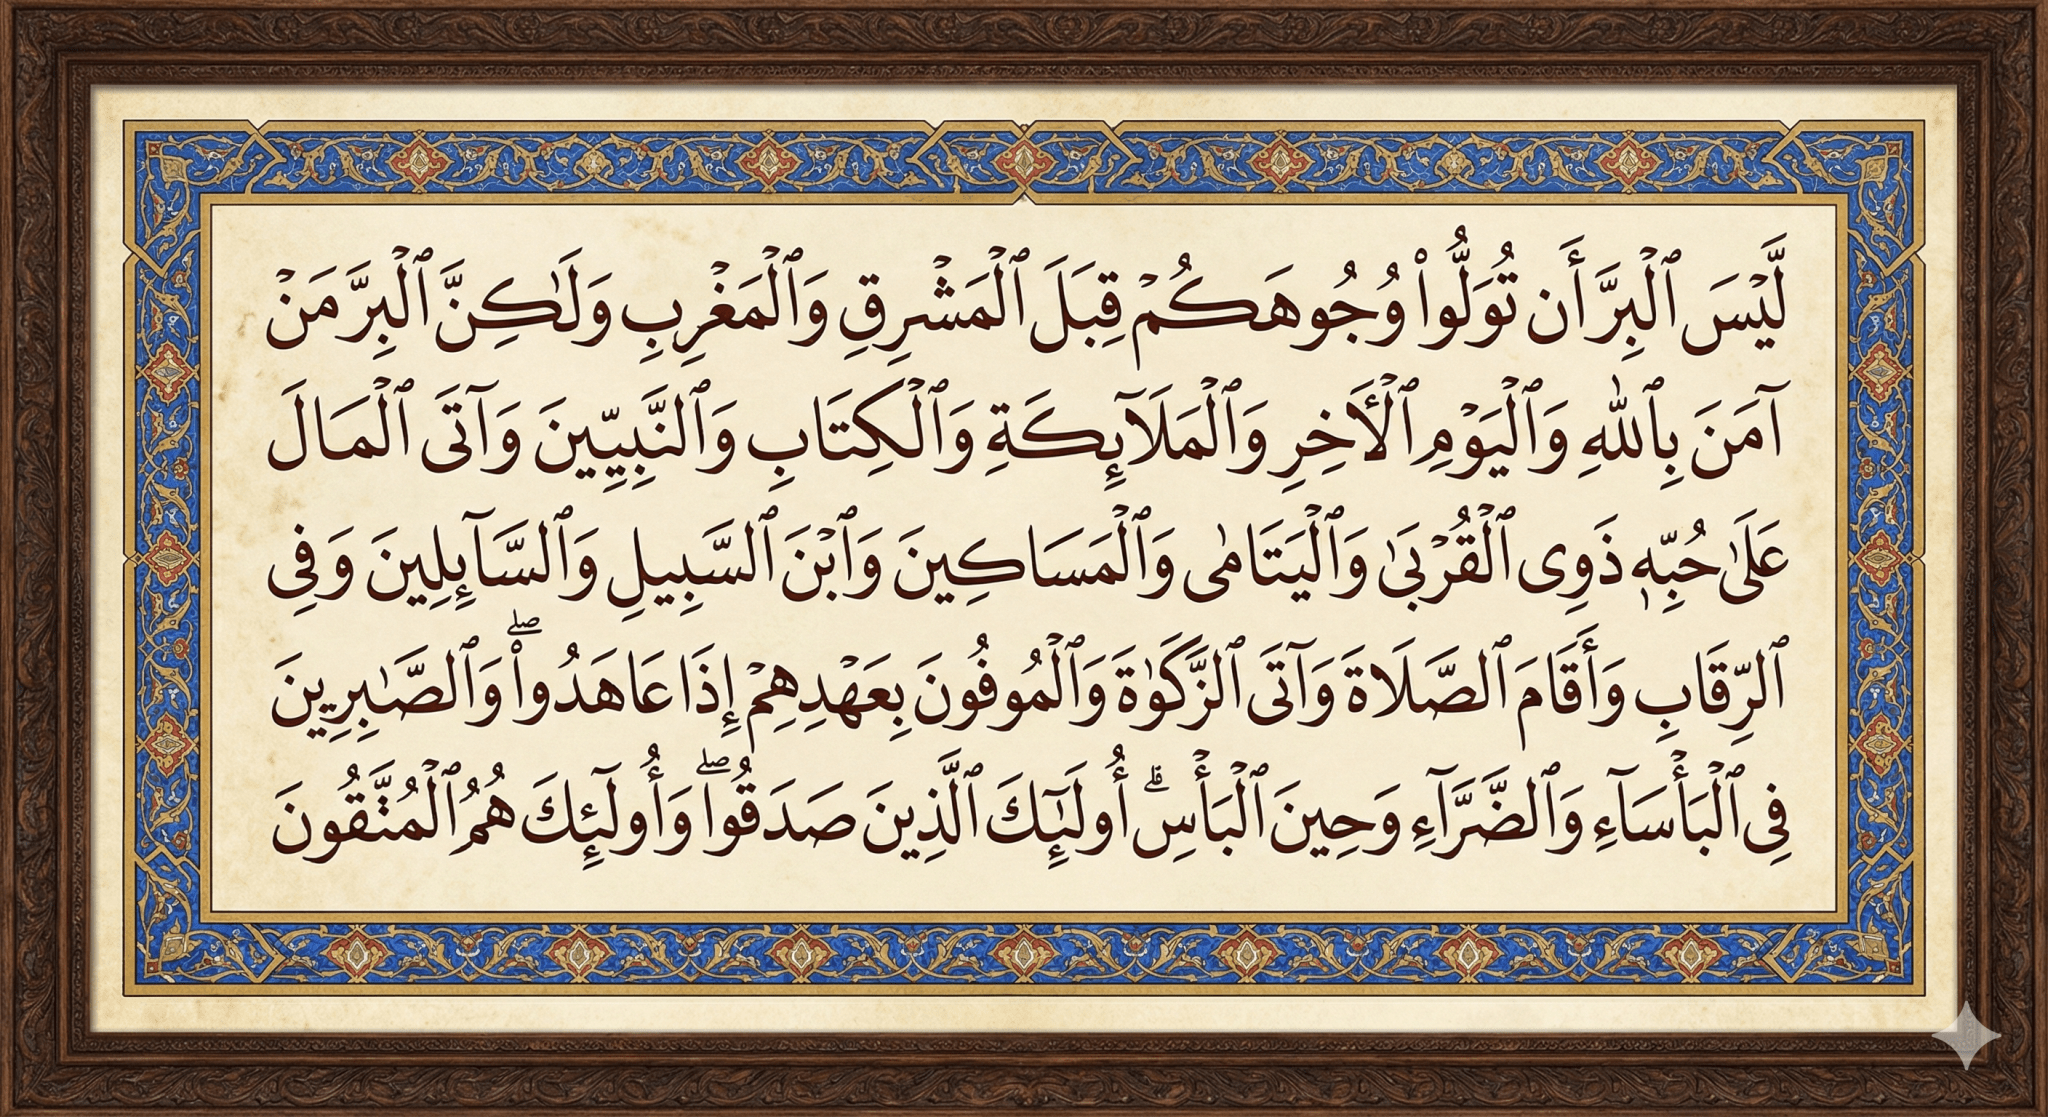 لَّيْسَ ٱلْبِرَّ أَن تُوَلُّوا۟ وُجُوهَكُمْ قِبَلَ ٱلْمَشْرِقِ وَٱلْمَغْرِبِ وَلَٰكِنَّ ٱلْبِرَّ مَنْ
آمَنَ بِٱللَّهِ وَٱلْيَوْمِ ٱلْأَخِرِ وَٱلْمَلَآئِكَةِ وَٱلْكِتَابِ وَٱلنَّبِيِّينَ وَآتَى ٱلْمَالَ
عَلَىٰ حُبِّهِۦ ذَوِى ٱلْقُرْبَىٰ وَٱلْيَتَامَىٰ وَٱلْمَسَاكِينَ وَٱبْنَ ٱلسَّبِيلِ وَٱلسَّآئِلِينَ وَفِى
ٱلرِّقَابِ وَأَقَامَ ٱلصَّلَاةَ وَآتَى ٱلزَّكَوٰةَ وَٱلْمُوفُونَ بِعَهْدِهِمْ إِذَا عَاهَدُوا۟ ۖ وَٱلصَّٰبِرِينَ
فِى ٱلْبَأْسَآءِ وَٱلضَّرَّآءِ وَحِينَ ٱلْبَأْسِ ۗ أُولَٰٓئِكَ ٱلَّذِينَ صَدَقُوا ۖ وَأُولَٓئِكَ هُمُ ٱلْمُتَّقُونَ